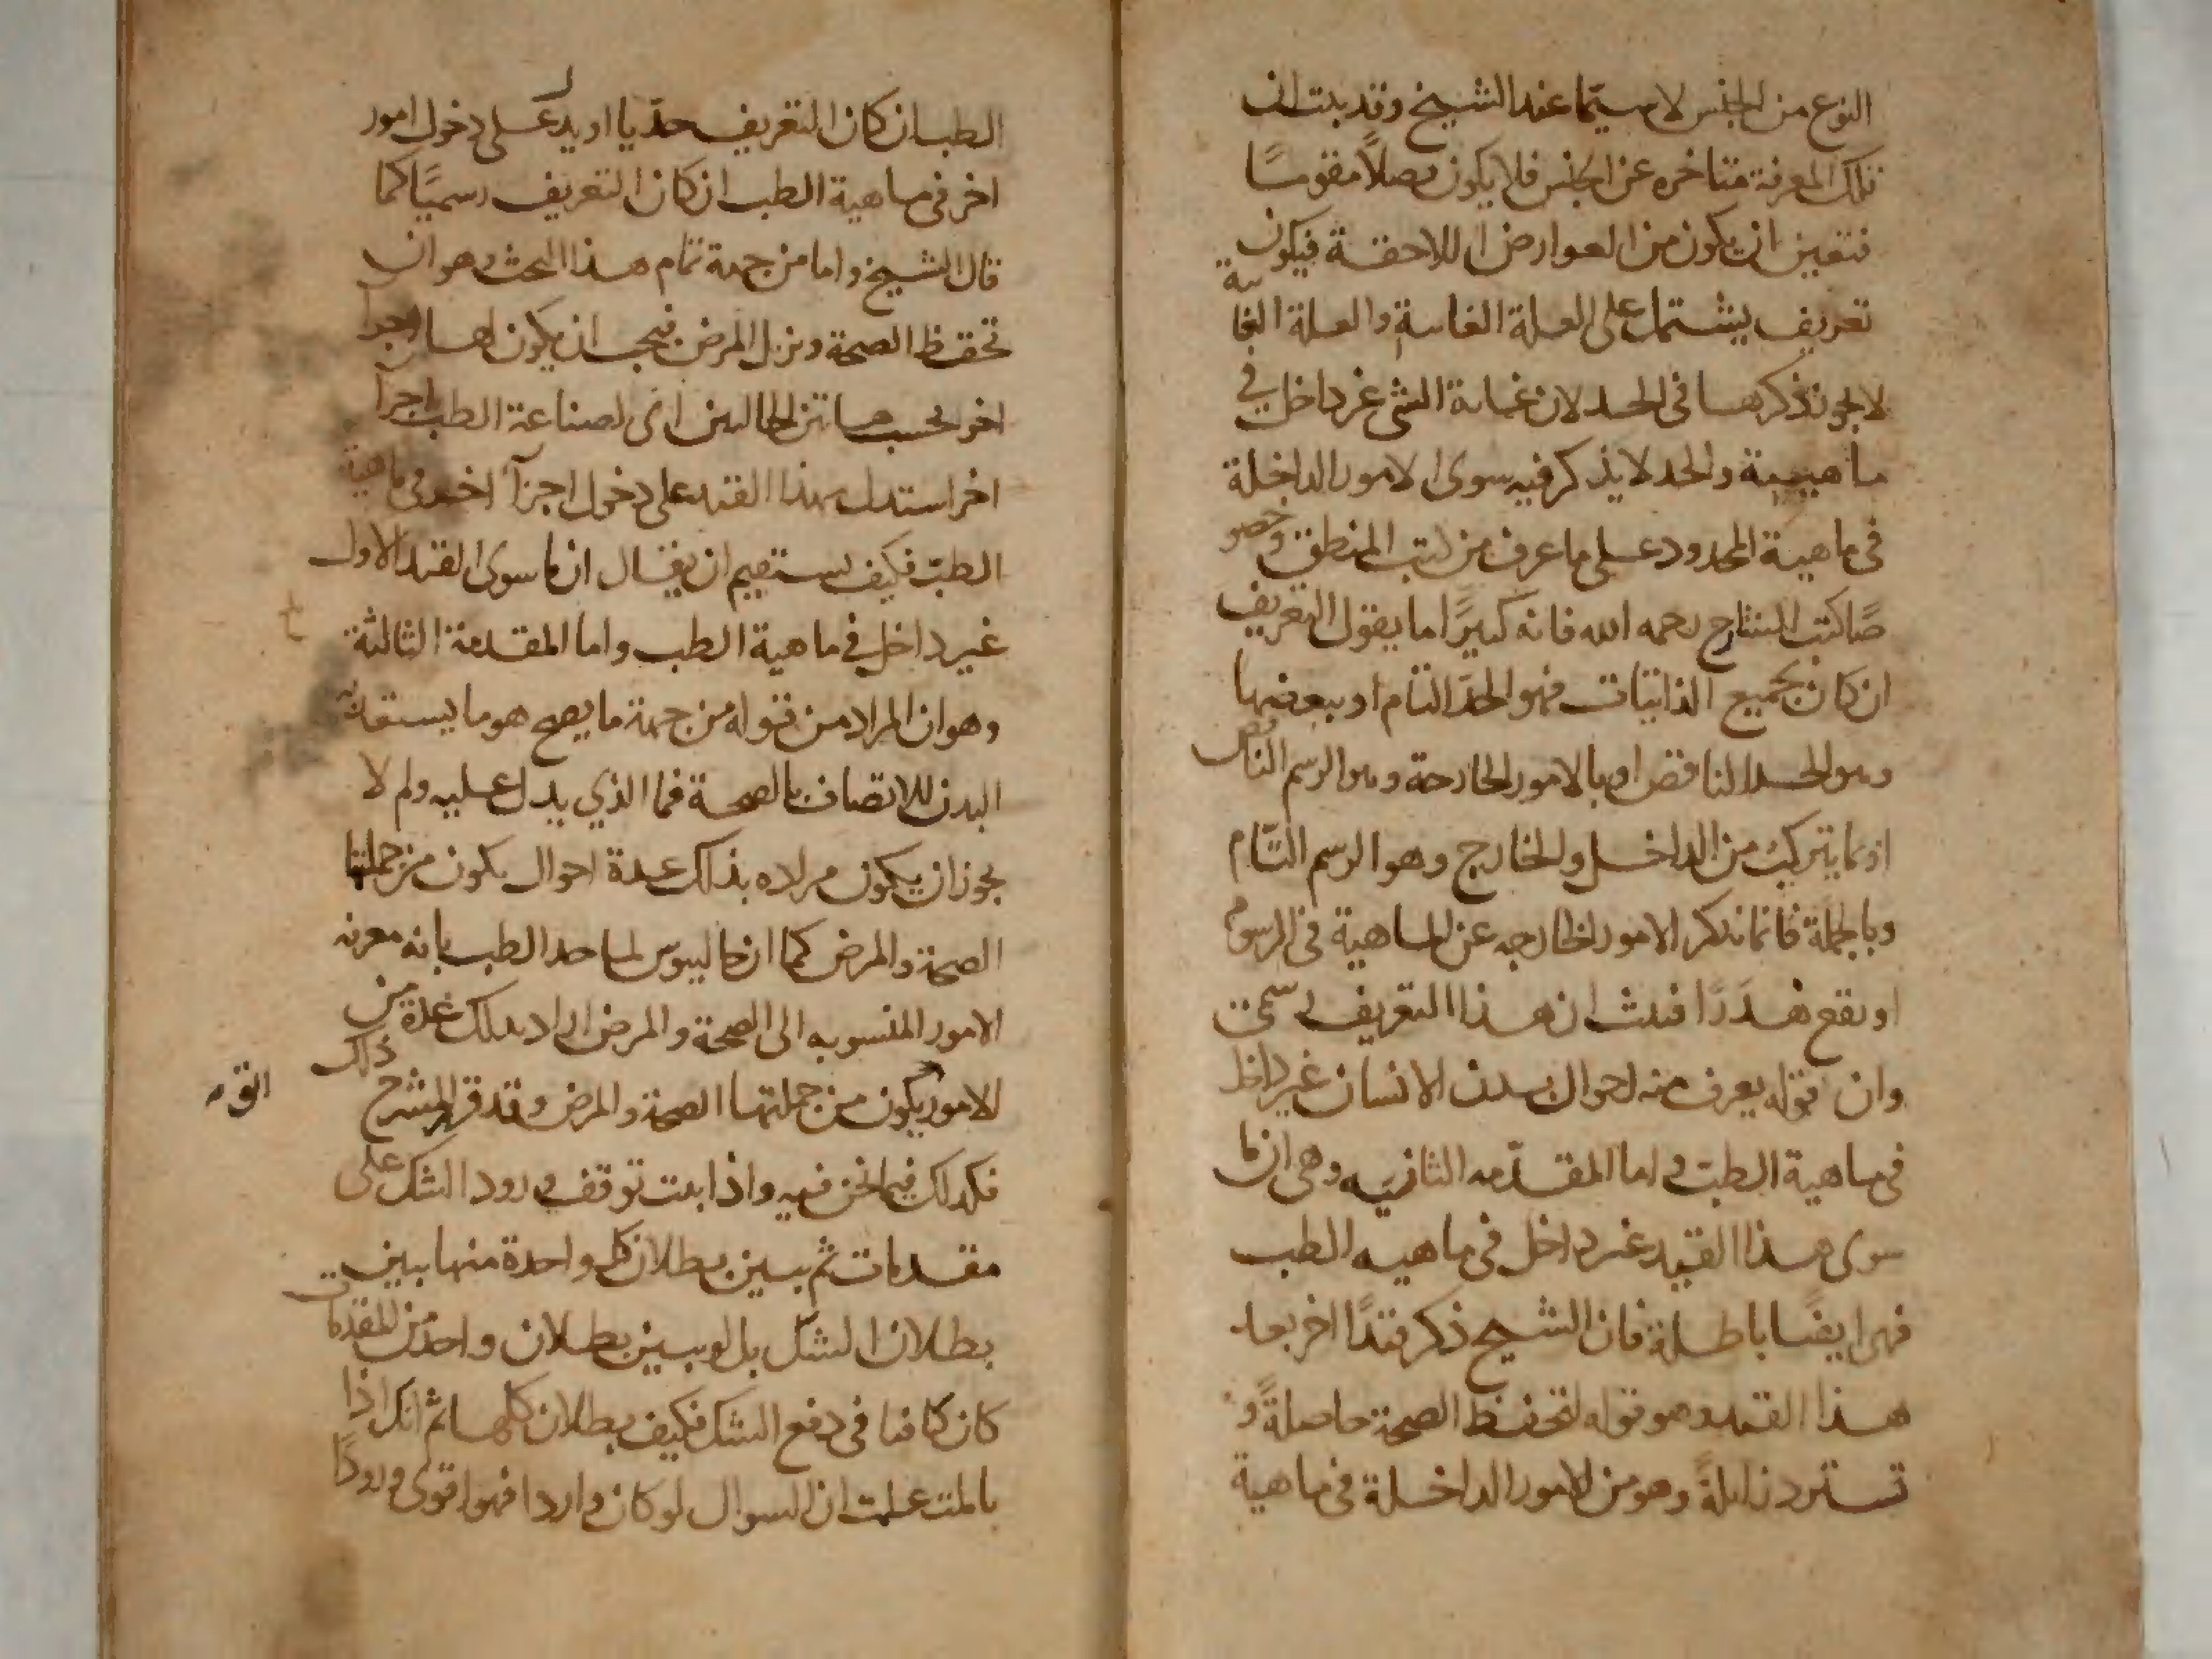 النوع من الجنس لا سيما عند الشيخ وقد بينت ان
تلك المعرفة متاخره عن الجنس فلا يكون فصلاً مقومًا
فتعين ان يكون من العوارض اللاحقة فيكون
تعريف يشتمل على العلة الغاسية والعلة الغا ئية
لا يجوز ذكرها فى الحد لان غاية الشى غير داخل في
ماهيته والحد لا يذكر فيه سوى الامور الداخلة
فى ماهية المحدود على ما عرف من كتب المنطق وخصو
صًا كتب الشارح رحمه الله فانه كثيرًا ما يقول التعريف
ان كان بجميع الذاتيات فهو الحد التام او ببعضها
وهو الحد الناقص او بالامور الخارجة وهو الرسم الناقص
او بما يتركب من الداخل والخارج وهو الرسم التام
وبالجملة فانما تذكر الامور الخارجه عن الماهية فى الرسوم
او تقع هدرًا فثبت ان هذا التعريف رسمى
وان قوله يعرف منه احوال بدن الانسان غير داخل
فى ماهية الطب و اما المقدمه الثانيه وهى ان ما
سوى هذا القيد غير داخل فى ماهيه الطب
فهى ايضًا باطلة فان الشيخ ذكر قيدًا اخر بعد
هذا القيد وهو قوله لتحفظ الصحة حاصلةً و
تسترد زايلةً وهو من الامور الداخلة فى ماهية
الطب ان كان التعريف حديا او يدل على دخول امور
اخر فى ماهية الطب ان كان التعريف رسميًا كما
قال الشيخ واما من جهة تمام هذا البحث وهو ان
تحفظ الصحة وتزيل المرض فيجب ان يكون لها اجزا
اخر بحسب هاتين الحالتين اى لصناعة الطب اجزا
اخر استدل بهذا القيد على دخول اجزآ اخر فى ماهية
الطب فكيف يستقيم ان يقال ان ما سوى القيد الاول
غير داخل فى ماهية الطب واما المقدمة الثالثة
وهو ان المراد من قوله من جهة ما يصح هو ما يستعد به
البدن للاتصاف بالصحة فما الذي يدل عليه ولم لا
يجوز ان يكون مراده بذلك عدة احوال يكون من جملتها
الصحة والمرض كما ان جالينوس لما حد الطب بانه معرفه
الامور المنسوبه الى الصحة والمرض اراد بذلك عدة من
الامور يكون من جملتها الصحة والمرض وقد قر الشرح ذلك
فكذلك فيما نحن فيه واذا بينت توقف ورود الشك على
مقدمات ثم تبين بطلان كل واحدة منها تبين
بطلان الشك بل لو تبين بطلان واحدة من المقدمات
كان كافيا فى دفع الشك فكيف بطلان كلها ثم انك اذا
تاملت علمت ان السوال لو كان واردا فهو اقوى ورودًا